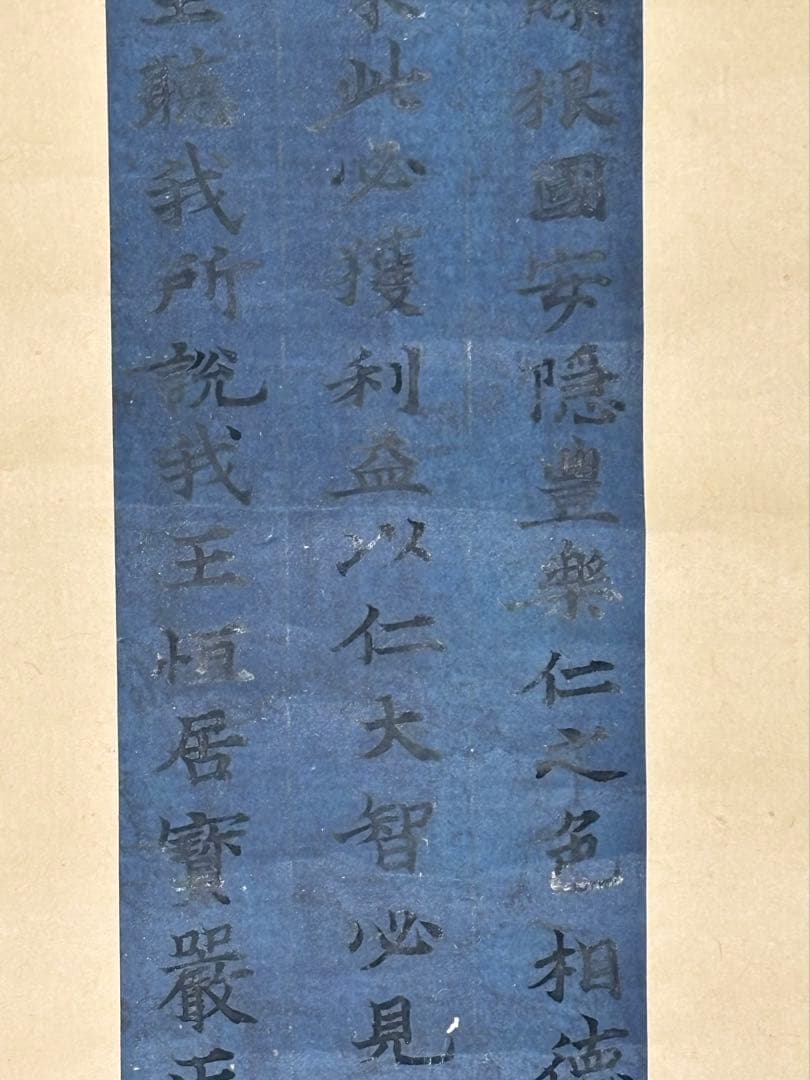 根國安隱豊樂仁之色相德
此必獲利益以仁大智必見
聽我所說我王恒居寳嚴